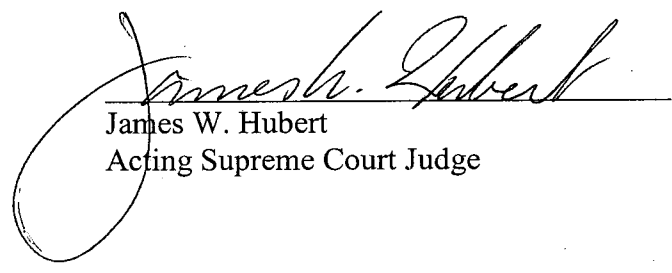 James W. Hubert
James W. Hubert
Acting Supreme Court Judge